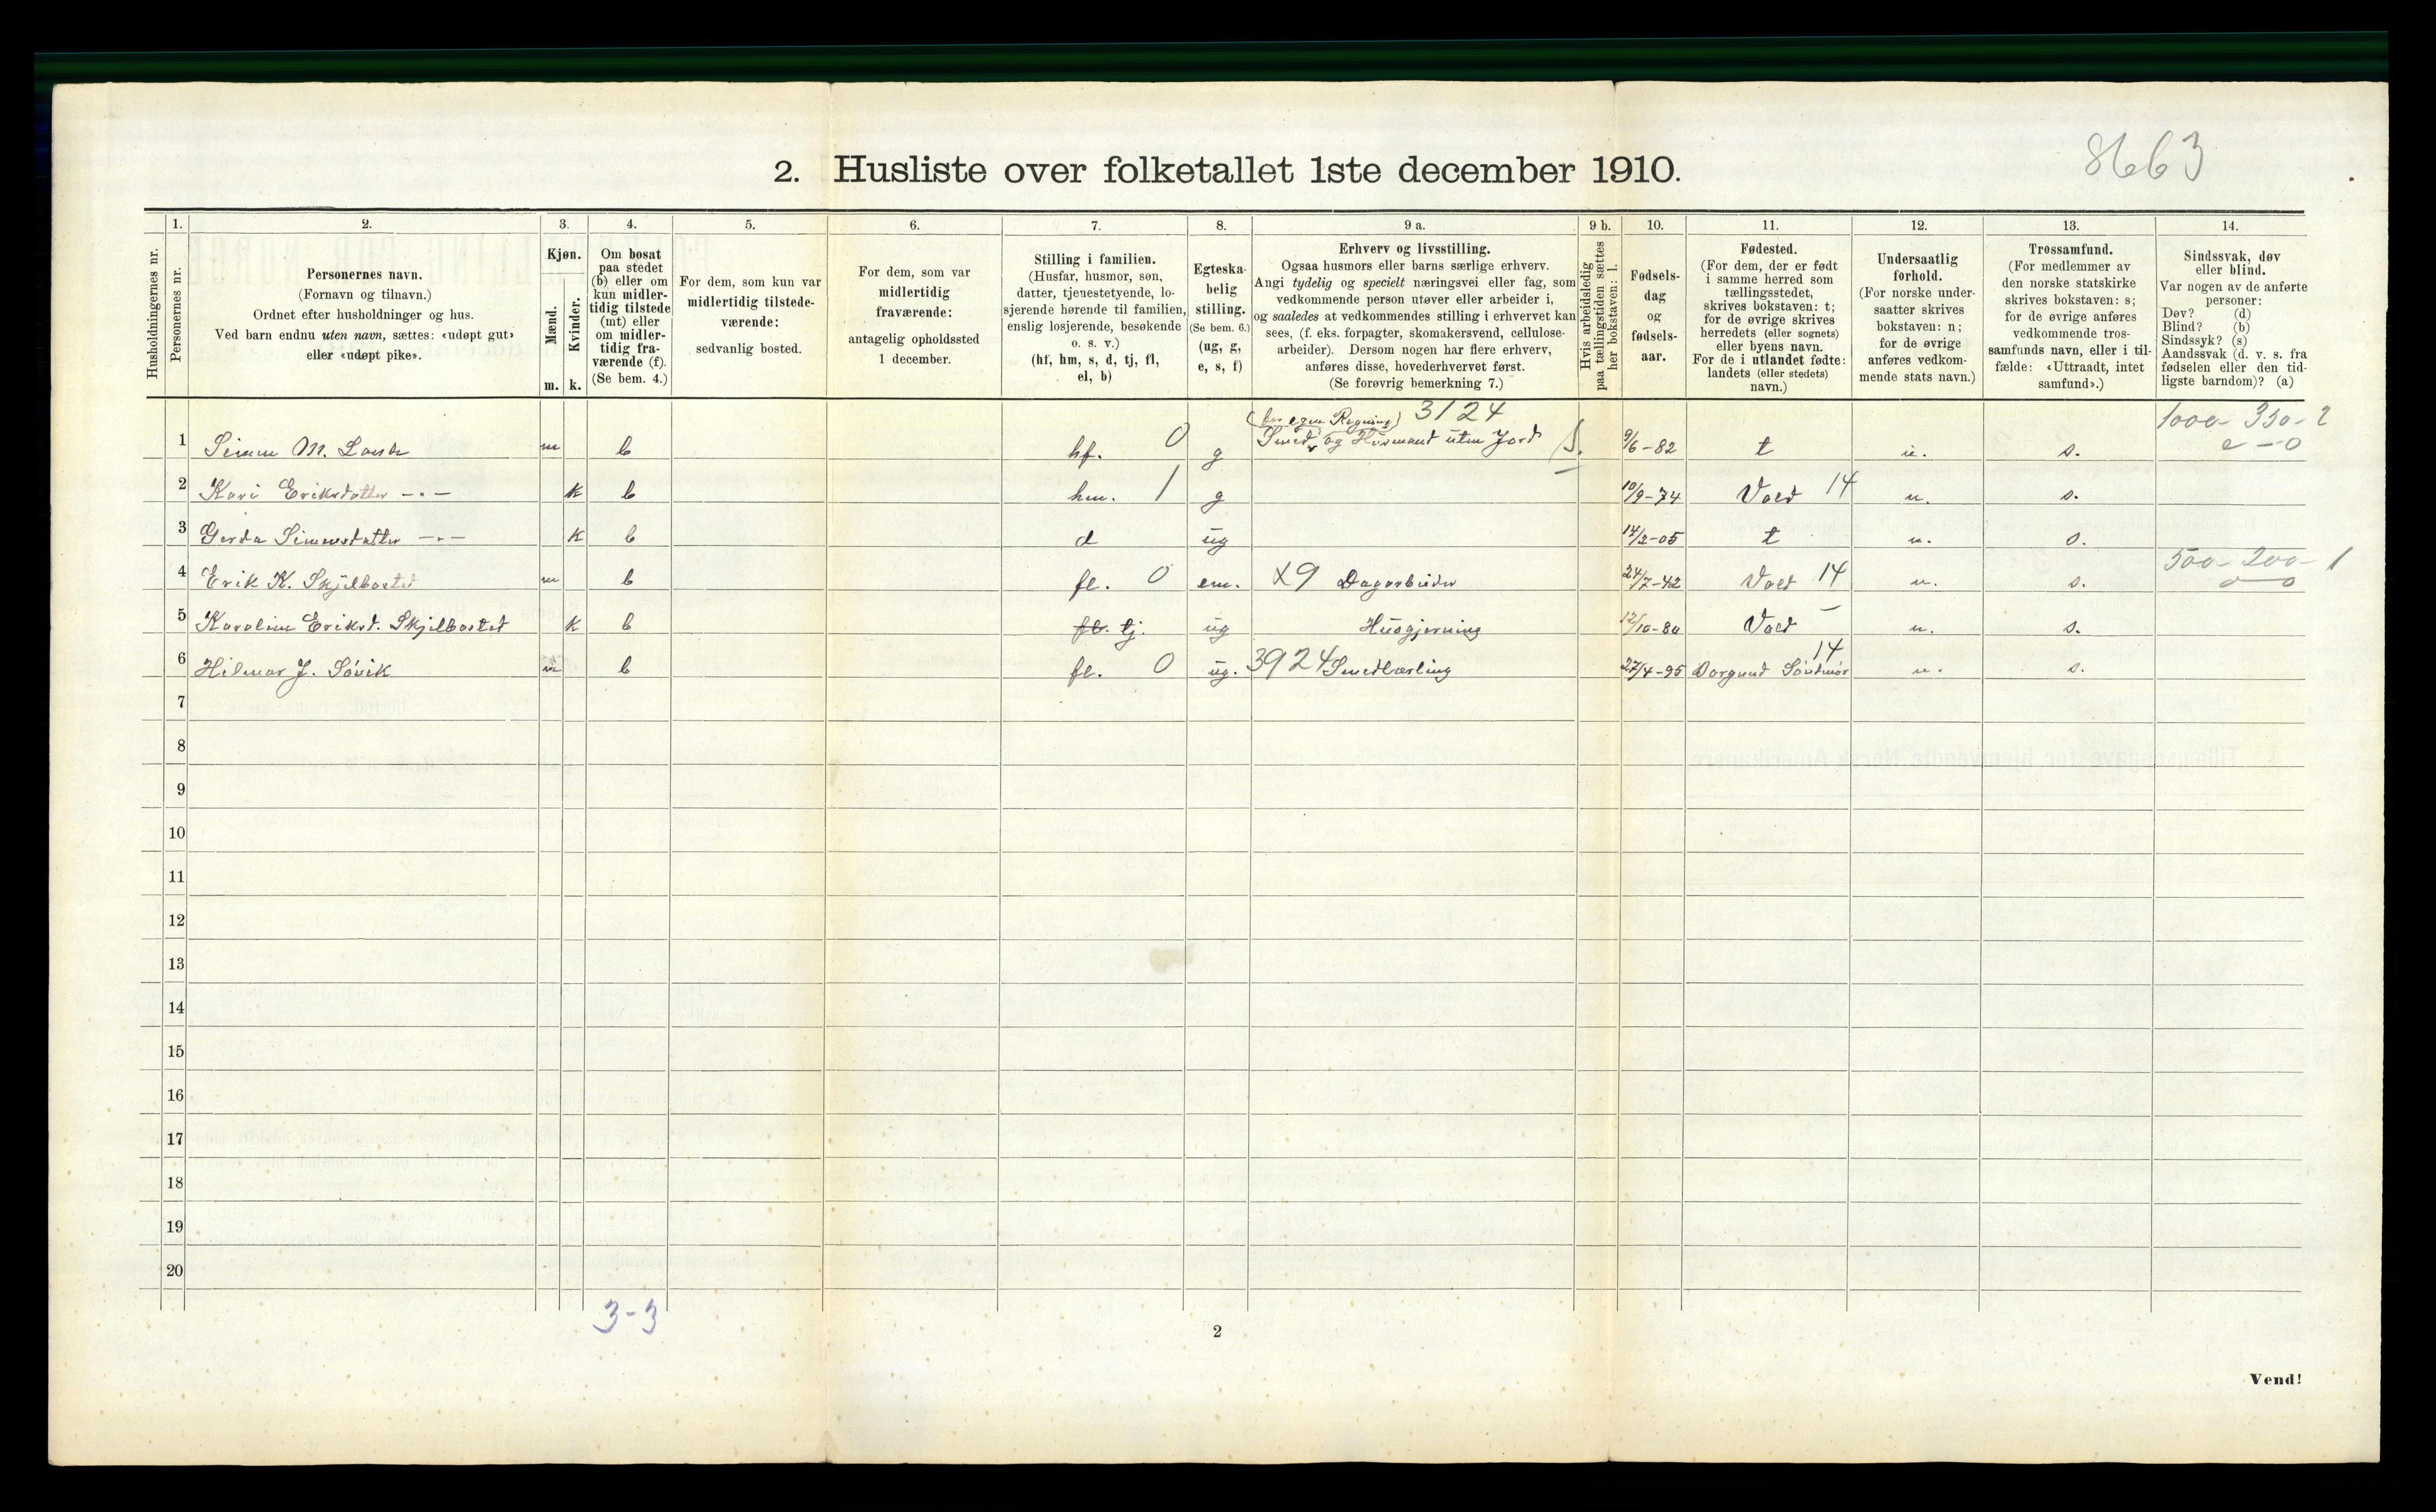 8663
2. Husliste over folketallet 1ste december 1910.
Husholdningernes nr.
1. Personernes nr.
2. Personernes navn.
(Fornavn og tilnavn.)
Ordnet efter husholdninger og hus.
Ved barn endnu uten navn, sættes: «udøpt gut»
eller «udøpt pike».
3. Kjøn.
Mænd. m.
Kvinder. k.
4. Om bosat
paa stedet
(b) eller om
kun midler-
tidig tilstede
(mt) eller
om midler-
tidig fra-
værende (f).
(Se bem. 4.)
5. For dem, som kun var
midlertidig tilstede-
værende:
sedvanlig bosted.
6. For dem, som var
midlertidig
fraværende:
antagelig opholdssted
1 december.
7. Stilling i familien.
(Husfar, husmor, søn,
datter, tjenestetyende, lo-
sjerende hørende til familien,
enslig losjerende, besøkende
o. s. v.)
(hf, hm, s, d, tj, fl,
el, b)
8. Egteska-
belig
stilling.
(Se bem. 6.)
(ug, g,
e, s, f)
9 a. Erhverv og livsstilling.
Ogsaa husmors eller barns særlige erhverv.
Angi tydelig og specielt næringsvei eller fag, som
vedkommende person utøver eller arbeider i,
og saaledes at vedkommendes stilling i erhvervet kan
sees, (f. eks. forpagter, skomakersvend, cellulose-
arbeider). Dersom nogen har flere erhverv,
anføres disse, hovederhvervet først.
(Se forøvrig bemerkning 7.)
9 b. Hvis arbeidsledig
paa tællingstiden sættes
her bokstaven: l.
10. Fødsels-
dag
og
fødsels-
aar.
11. Fødested.
(For dem, der er født
i samme herred som
tællingsstedet,
skrives bokstaven: t;
for de øvrige skrives
herredets (eller sognets)
eller byens navn.
For de i utlandet fødte:
landets (eller stedets)
navn.)
12. Undersaatlig
forhold.
(For norske under-
saatter skrives
bokstaven: n;
for de øvrige
anføres vedkom-
mende stats navn.)
13. Trossamfund.
(For medlemmer av
den norske statskirke
skrives bokstaven: s;
for de øvrige anføres
vedkommende tros-
samfunds navn, eller i til-
fælde: «Uttraadt, intet
samfund».)
14. Sindssvak, døv
eller blind.
Var nogen av de anførte
personer:
Døv? (d)
Blind? (b)
Sindssyk? (s)
Aandssvak (d. v. s. fra
fødselen eller den tid-
ligste barndom)? (a)
(for egen Regning) 3124 1000-350-2
1 m b hf. 0 g Smed og Husmand uten Jord 9/6-82 t n. s. e-0
2 Kari Eriksdatter -"- k b hm. 1 g 10/9-74 Vold 14 n. s.
3 Gerda Simensdatter -"- k b d ug 14/2-05 t n. s.
500-200-1
4 Erik K. Skjelbostad m b fl. 0 em. X9 Dagarbeider 24/7-42 Vold 14 n. s. 0-0
5 Karoline Eriksd. Skjelbostad k b fl. tj. ug Husgjerning 12/10-80 Vold - n. s.
6 Hilmar J. Søvik m b fl. 0 ug. 3924 Smedlærling 27/4-95 Borgund Søndmør 14 n. s.
7
8
9
10
11
12
13
14
15
16
17
18
19
20
3-3
2
Vend!